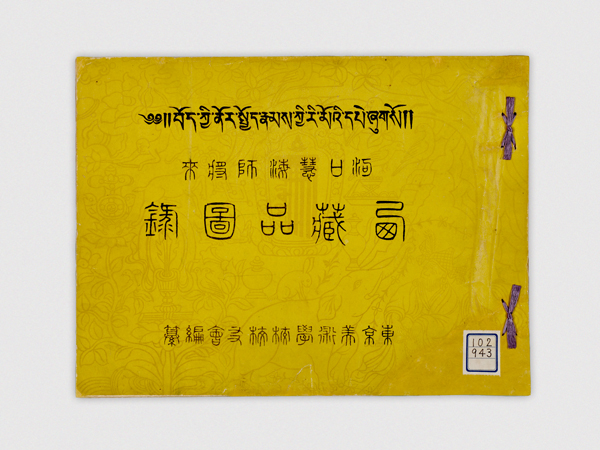 ༄༅།།བོད་ཀྱི་ནོར་སྤྱོད་རྣམས་ཀྱི་རི་མོའི་དཔེ་ཞུགསོ།།
河口慧海師將來
西藏品圖錄
東京美術學校校友會編纂
102
943